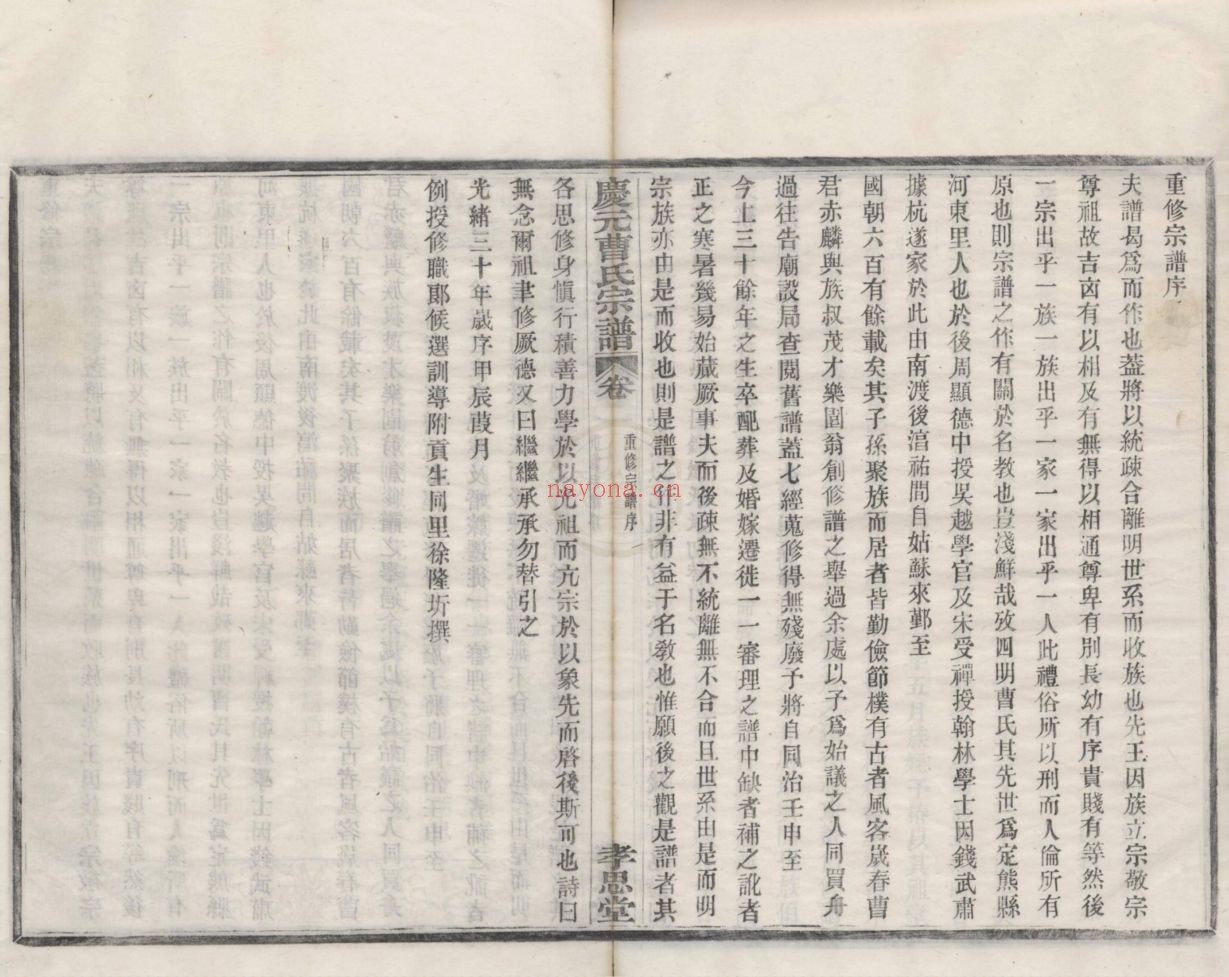 重修宗譜序
夫譜曷爲而作也葢將以統疏合離明世系而收族也先王因族立宗敬宗
尊祖故吉㐫有以相及有無得以相通尊卑有別長幼有序貴賤有等然後
一宗出乎一族一族出乎一家一家出乎一人此禮俗所以刑而人倫所有
原也則宗譜之作有關於名教也豈淺鮮哉攷四明曹氏其先世爲定熊縣
河東里人也於後周顯德中授吳越學官及宋受禪授翰林學士因錢武肅
據杭遂家於此由南渡後湻祐間自姑蘇來鄞至
國朝六百有餘載矣其子孫聚族而居者皆勤儉節樸有古者風客嵗春曹
君赤麟與族叔茂才樂園翁創修譜之舉過余處以予爲始議之人同買舟
過往告廟設局查閱舊譜蓋七經蒐修得無殘廢予將自同治壬申至
今上三十餘年之生卒配葬及婚嫁遷徙一一審理之譜中缺者補之訛者
正之寒暑幾易始蕆厥事夫而後疎無不統離無不合而且世系由是而明
宗族亦由是而收也則是譜之作非有益于名敎也惟願後之觀是譜者其
慶元曹氏宗譜 卷 重修宗譜序 孝思堂
各思修身愼行積善力學於以光祖而亢宗於以象先而啓後斯可也詩曰
無念爾祖聿修厥德又曰繼繼承承勿替引之
光緒三十年嵗序甲辰葭月
例授修職郞候選訓導附貢生同里徐隆圻撰
nayona.cn